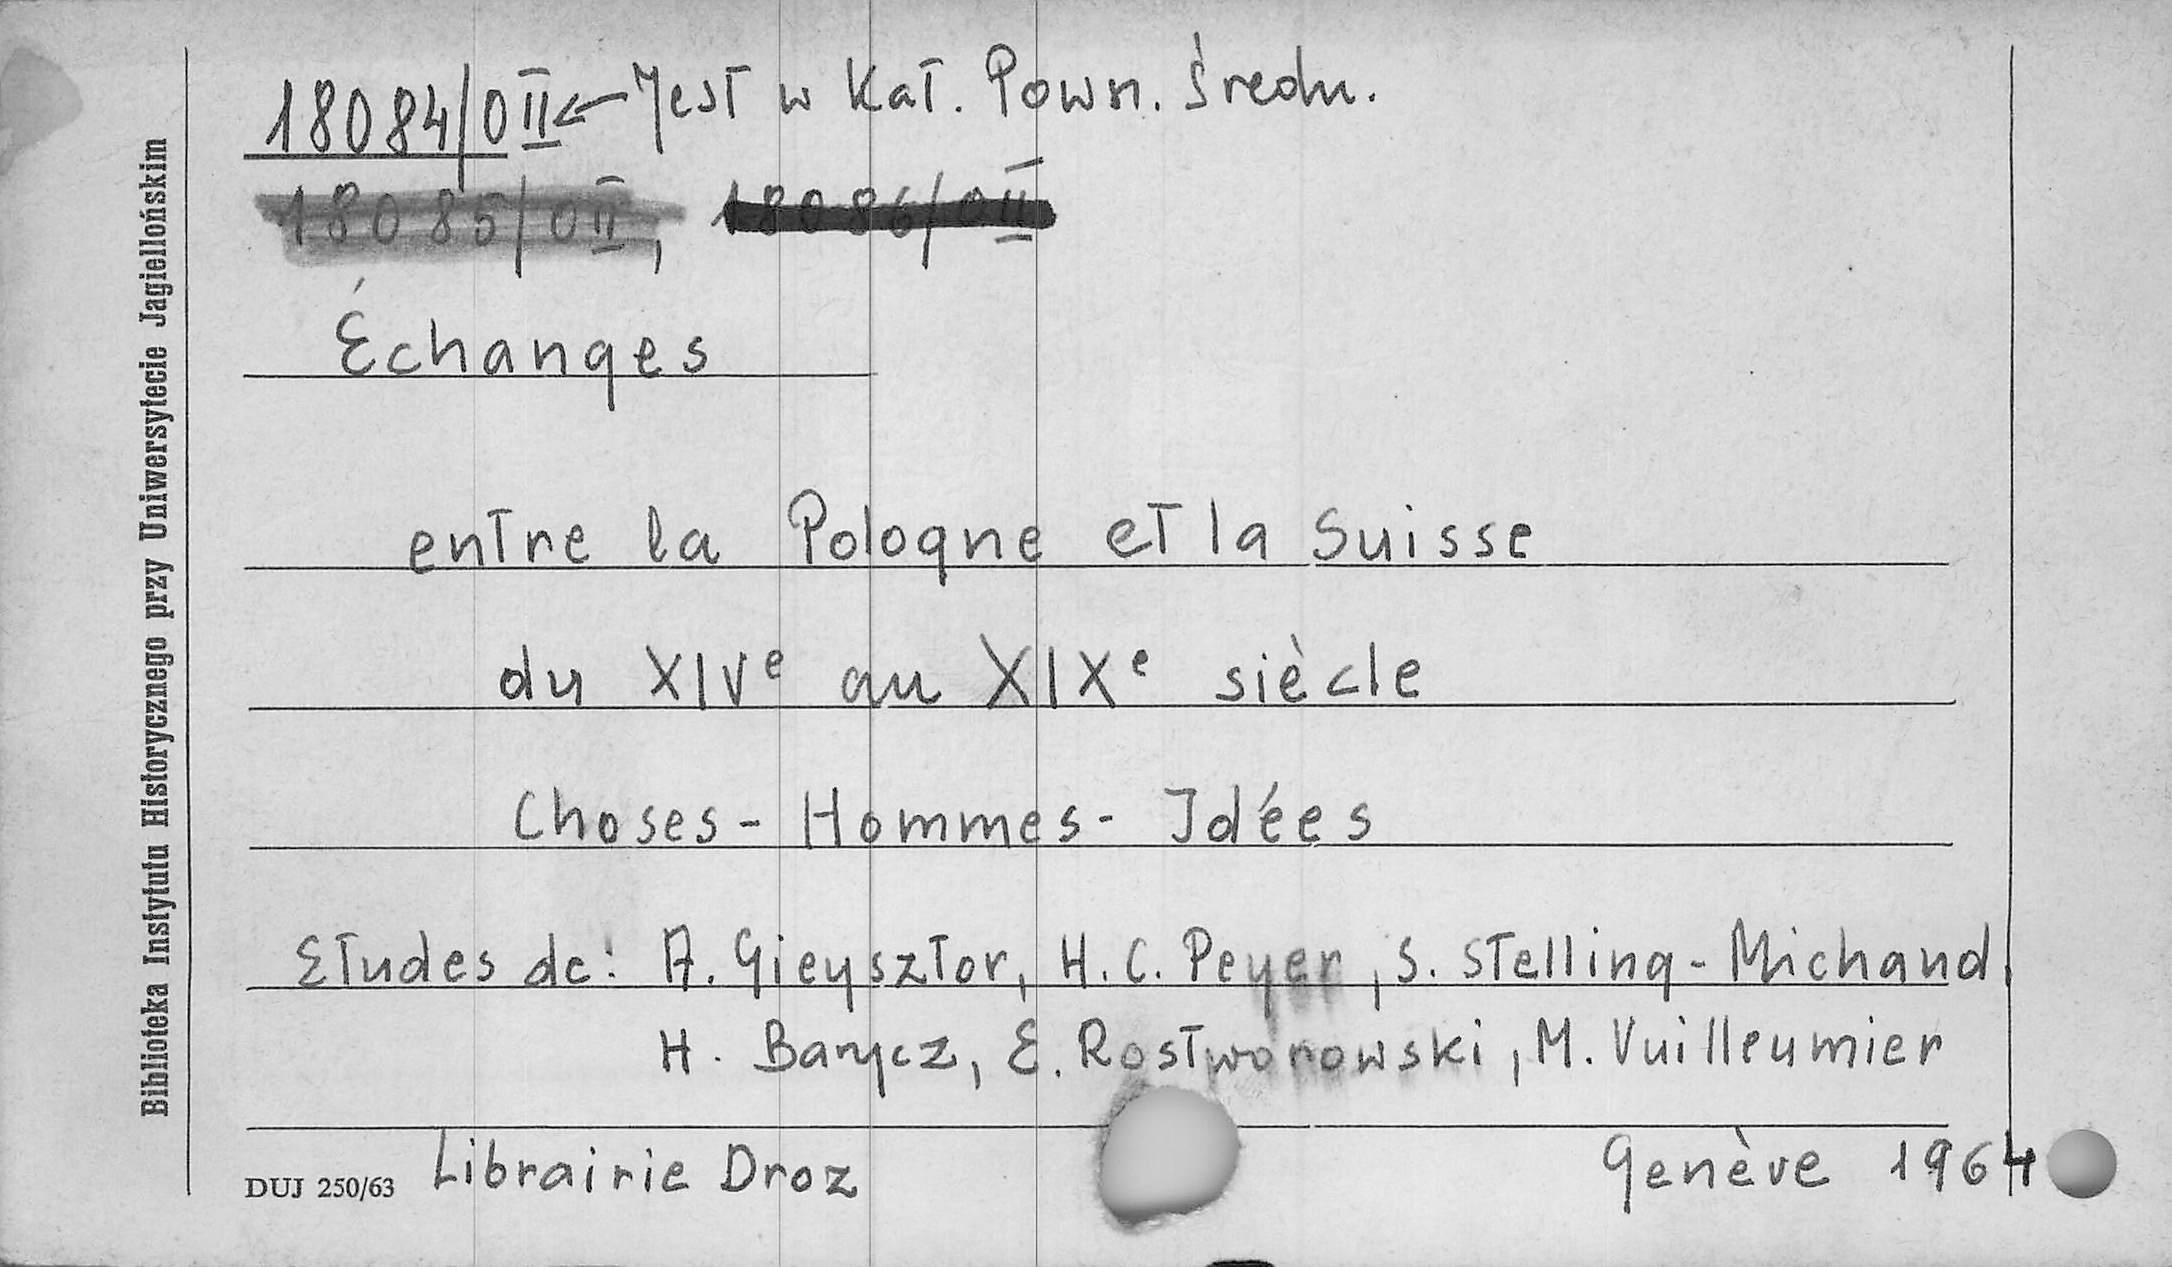 18084/0 II ← Jest w Kat. Pown. średn.
18085/0 II, 18086/0 II
Échanges
entre la Pologne et la Suisse
du XIVe au XIXe siècle
Choses - Hommes - Idées
Etudes de: A. Gieysztor, H. C. Peyer, S. Stelling-Michaud,
H. Barycz, E. Rostworowski, M. Vuilleumier
DUJ 250/63 Librairie Droz Genève 1964
Biblioteka Instytutu Historycznego przy Uniwersytecie Jagiellońskim